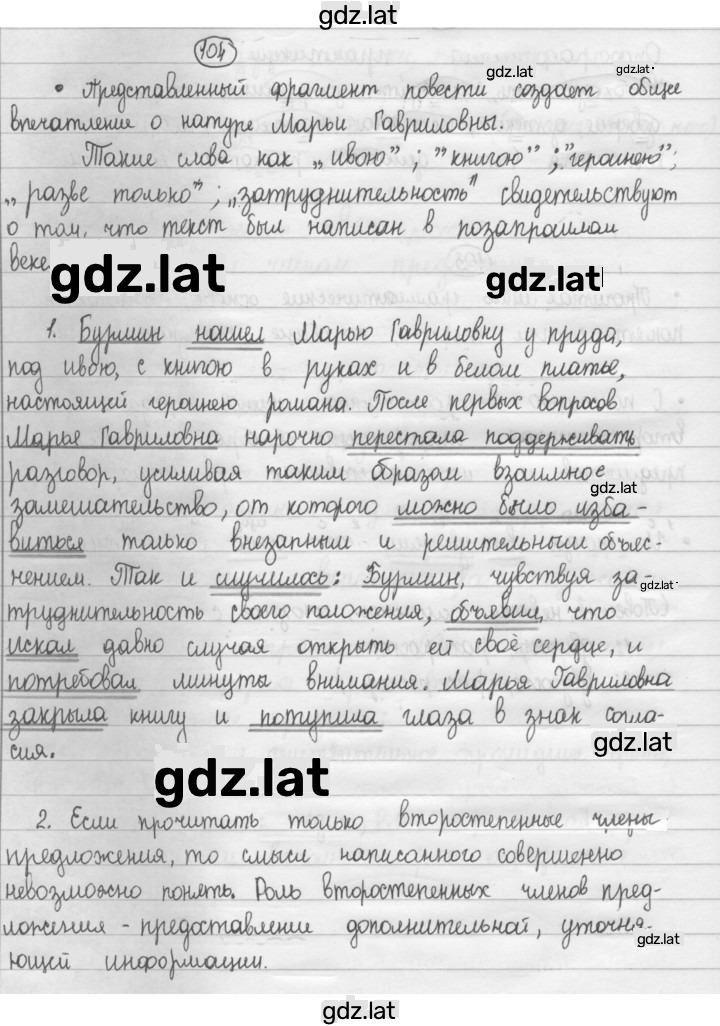 gdz.lat
104
gdz.lat gdz.lat
• Представленный фрагмент повести создает общее
впечатление о натуре Марьи Гавриловны.
Такие слова как „ивою"; "книгою"; "героинею";
„разве только"; „затруднительность" свидетельствуют
о том, что текст был написан в позапрошлом
веке.
gdz.lat gdz.lat
1. Бурмин нашел Марью Гавриловну у пруда,
под ивою, с книгою в руках и в белом платье,
настоящей героинею романа. После первых вопросов
Марья Гавриловна нарочно перестала поддерживать
разговор, усиливая таким образом взаимное
gdz.lat
замешательство, от которого можно было изба-
виться только внезапным и решительным объяс-
нением. Так и случилось: Бурмин, чувствуя за-
gdz.lat
труднительность своего положения, объявил, что
искал давно случая открыть ей своё сердце, и
потребовал минуты внимания. Марья Гавриловна
закрыла книгу и потупила глаза в знак согла-
gdz.lat
сия.
gdz.lat
2. Если прочитать только второстепенные члены
предложения, то смысл написанного совершенно
невозможно понять. Роль второстепенных членов пред-
ложения - предоставление дополнительной, уточня-
gdz.lat
ющей информации.
gdz.lat